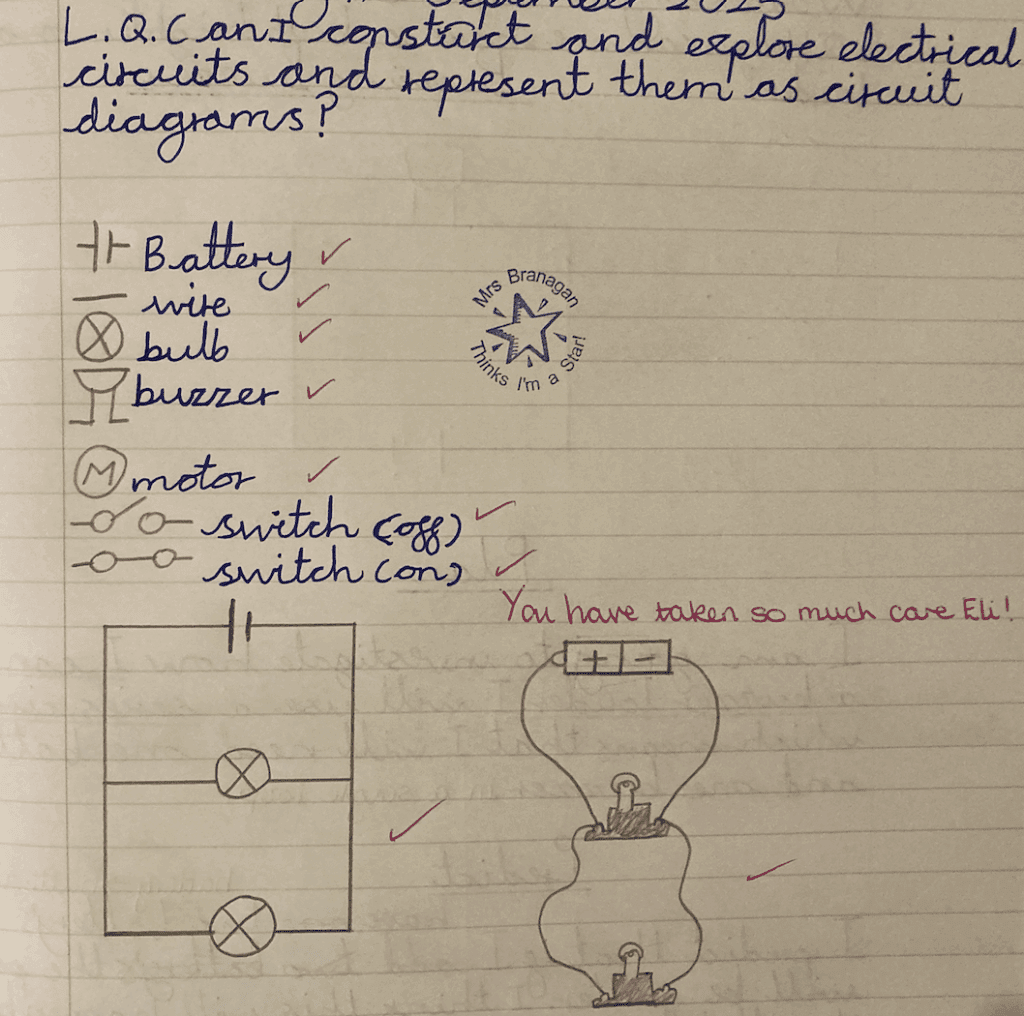 September 2025
L.Q. Can I consturct and explore electrical
circuits and represent them as circuit
diagrams?
Battery
wire
bulb
Mrs Branagan
Thinks I'm a Star!
buzzer
M motor
switch (off)
switch (on)
You have taken so much care Eli!
+ -